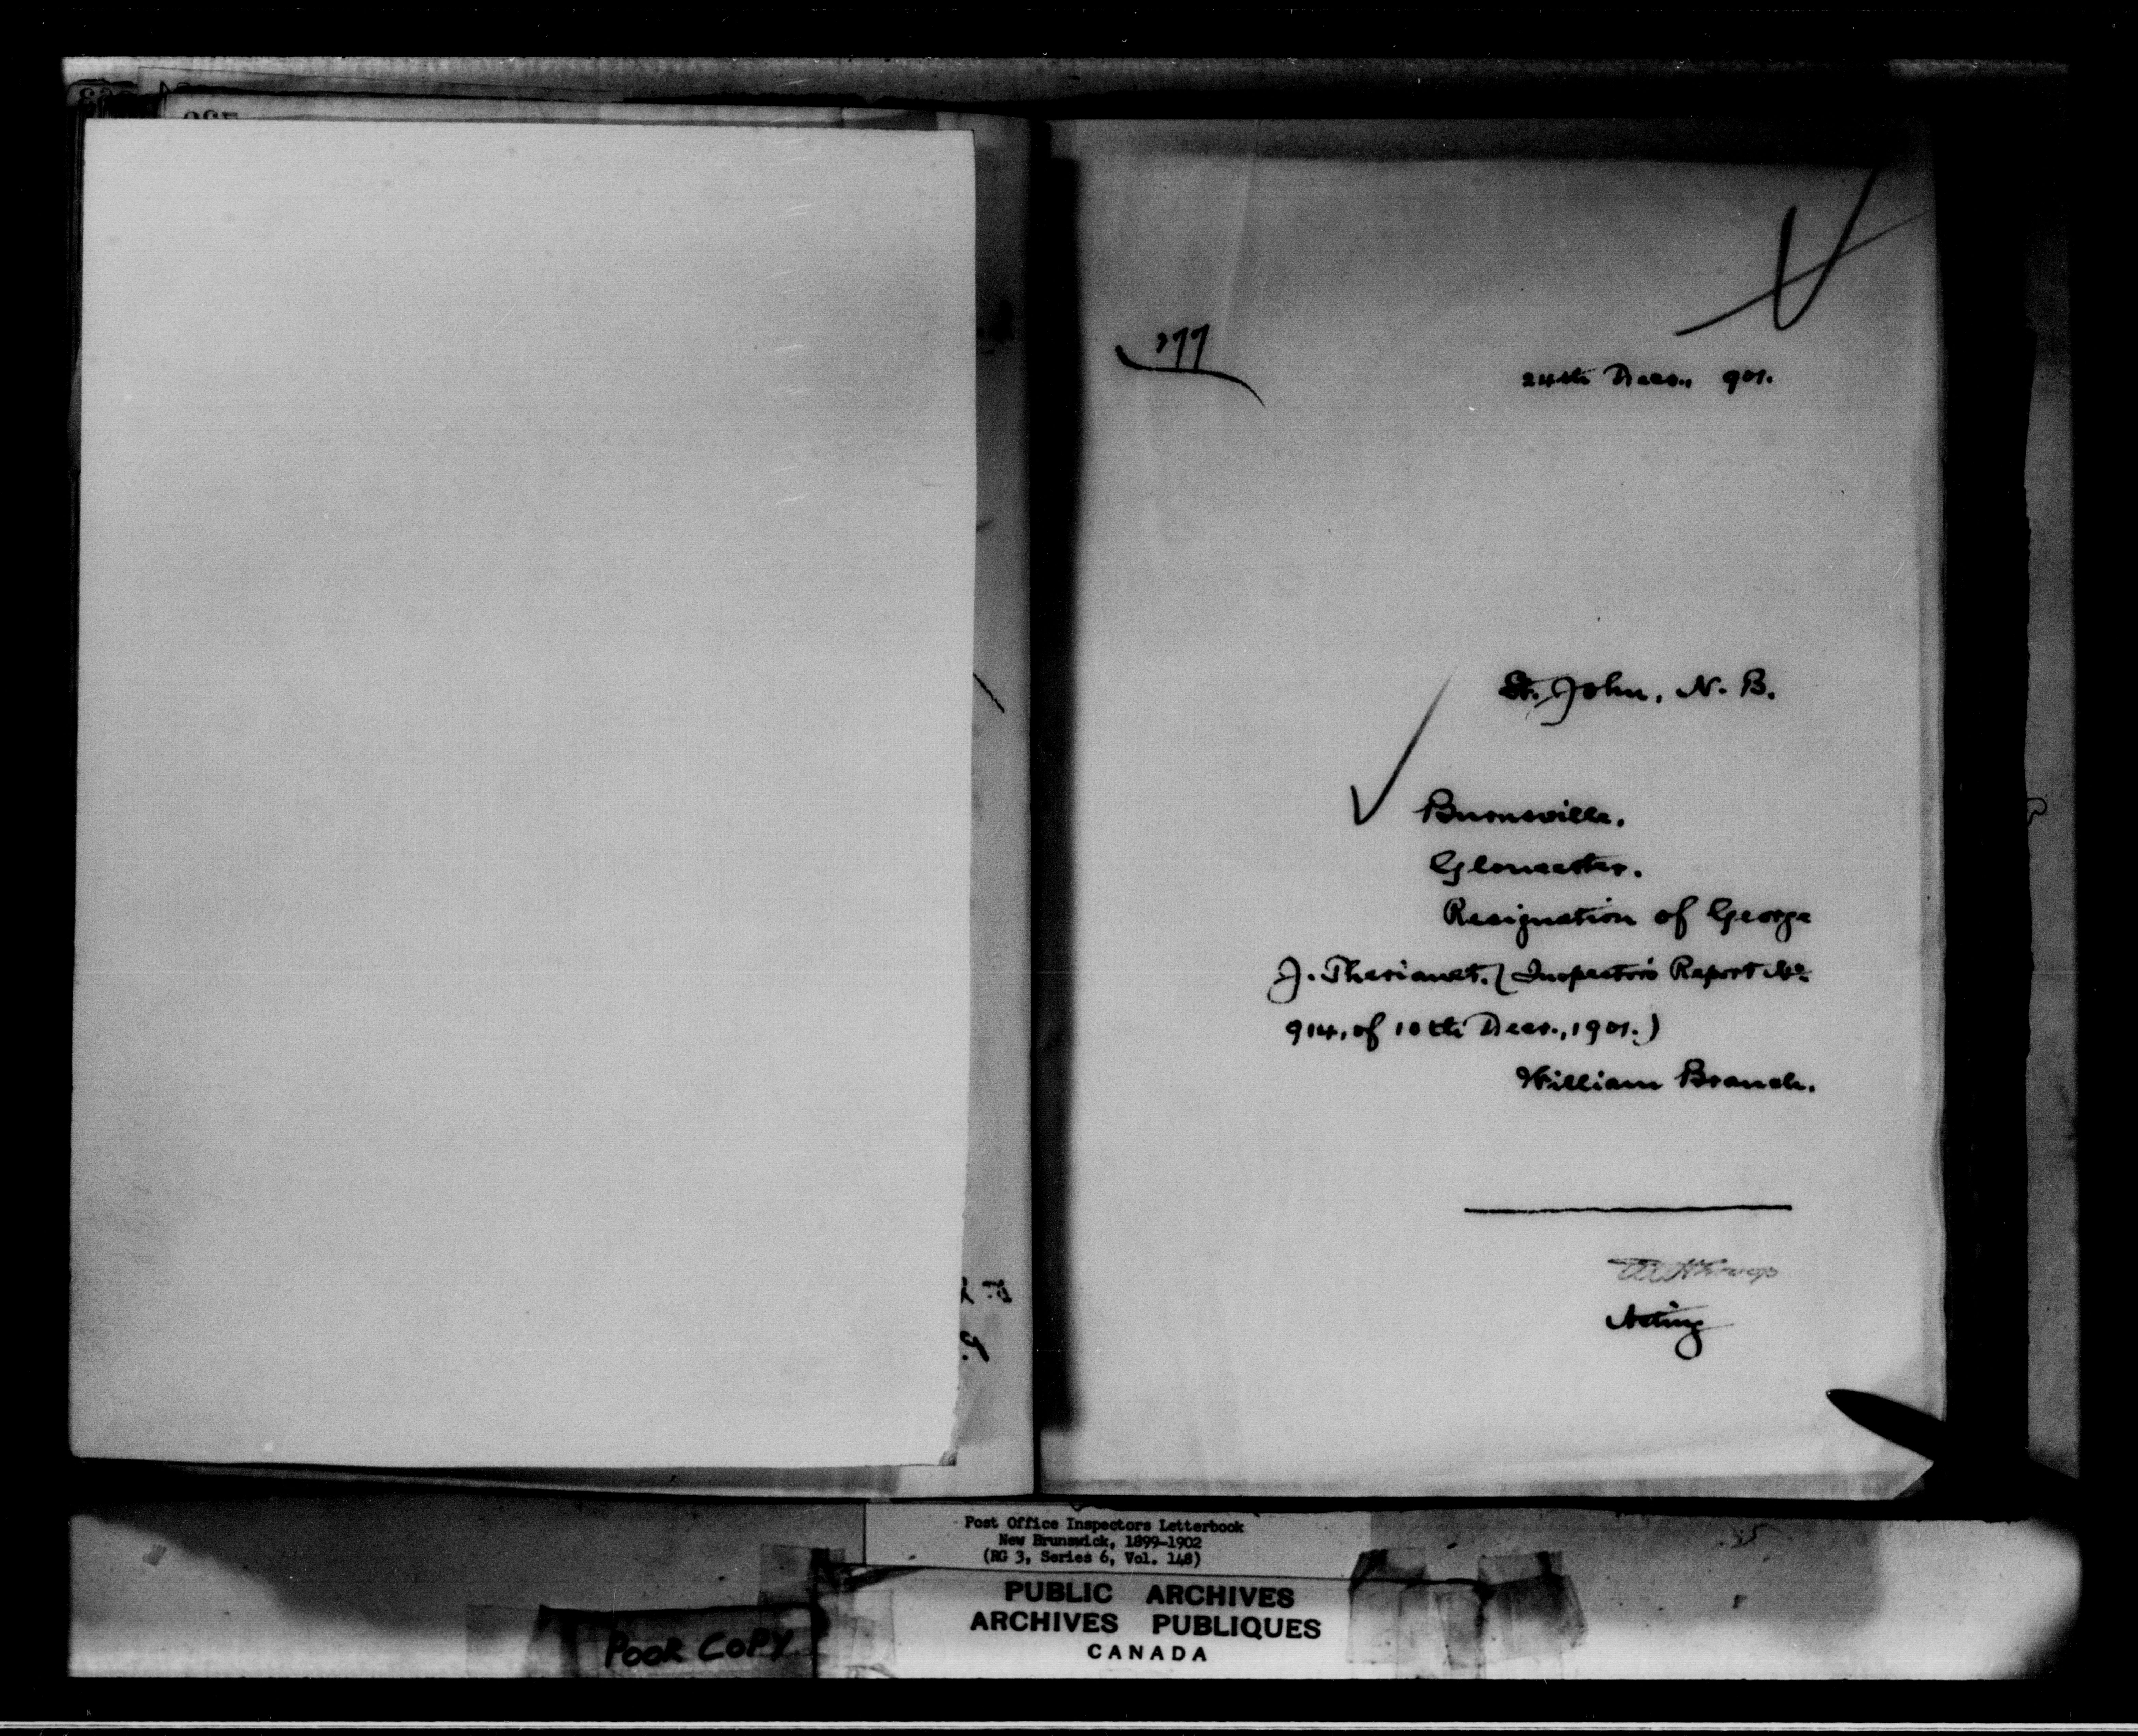 177
24th Decr., 901.
St. John, N. B.
Burnsville.
Gloucester.
Resignation of George
J. Theriault. (Inspector's Report No.
914, of 10th Decr., 1901.)
William Branch.
Acting
Post Office Inspectors Letterbook
New Brunswick, 1899-1902
(RG 3, Series 6, Vol. 148)
PUBLIC ARCHIVES
ARCHIVES PUBLIQUES
CANADA
POOR COPY